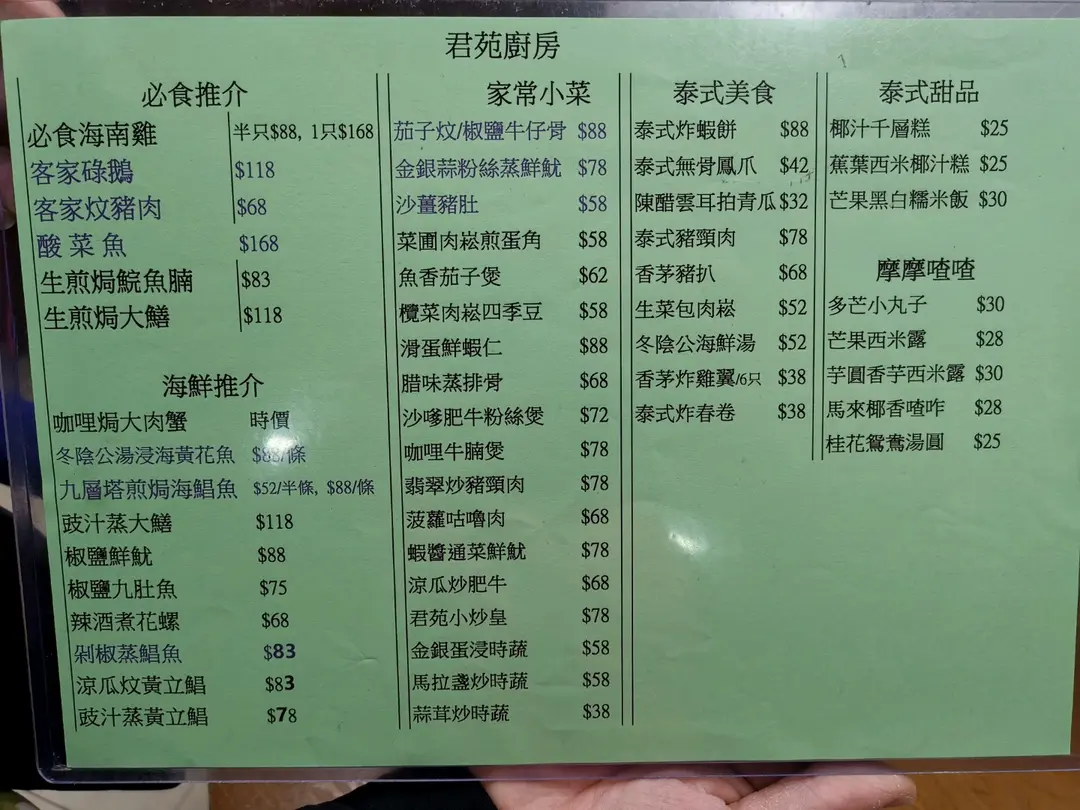 君苑廚房
必食推介
必食海南雞 半只$88, 1只$168
客家碌鵝 $118
客家炆豬肉 $68
酸菜魚 $168
生煎焗鯇魚腩 $83
生煎焗大鱔 $118
海鮮推介
咖哩焗大肉蟹 時價
冬陰公湯浸海黃花魚 $88/條
九層塔煎焗海鯧魚 $52/半條, $88/條
豉汁蒸大鱔 $118
椒鹽鮮魷 $88
椒鹽九肚魚 $75
辣酒煮花螺 $68
剁椒蒸鯧魚 $83
涼瓜炆黃立鯧 $83
豉汁蒸黃立鯧 $78
家常小菜
茄子炆/椒鹽牛仔骨 $88
金銀蒜粉絲蒸鮮魷 $78
沙薑豬肚 $58
菜圃肉崧煎蛋角 $58
魚香茄子煲 $62
欖菜肉崧四季豆 $58
滑蛋鮮蝦仁 $88
腊味蒸排骨 $68
沙嗲肥牛粉絲煲 $72
咖哩牛腩煲 $78
翡翠炒豬頸肉 $78
菠蘿咕嚕肉 $68
蝦醬通菜鮮魷 $78
涼瓜炒肥牛 $68
君苑小炒皇 $78
金銀蛋浸時蔬 $58
馬拉盞炒時蔬 $58
蒜茸炒時蔬 $38
泰式美食
泰式炸蝦餅 $88
泰式無骨鳳爪 $42
陳醋雲耳拍青瓜 $32
泰式豬頸肉 $78
香茅豬扒 $68
生菜包肉崧 $52
冬陰公海鮮湯 $52
香茅炸雞翼/6只 $38
泰式炸春卷 $38
泰式甜品
椰汁千層糕 $25
蕉葉西米椰汁糕 $25
芒果黑白糯米飯 $30
摩摩喳喳
多芒小丸子 $30
芒果西米露 $28
芋圓香芋西米露 $30
馬來椰香喳咋 $28
桂花鴛鴦湯圓 $25